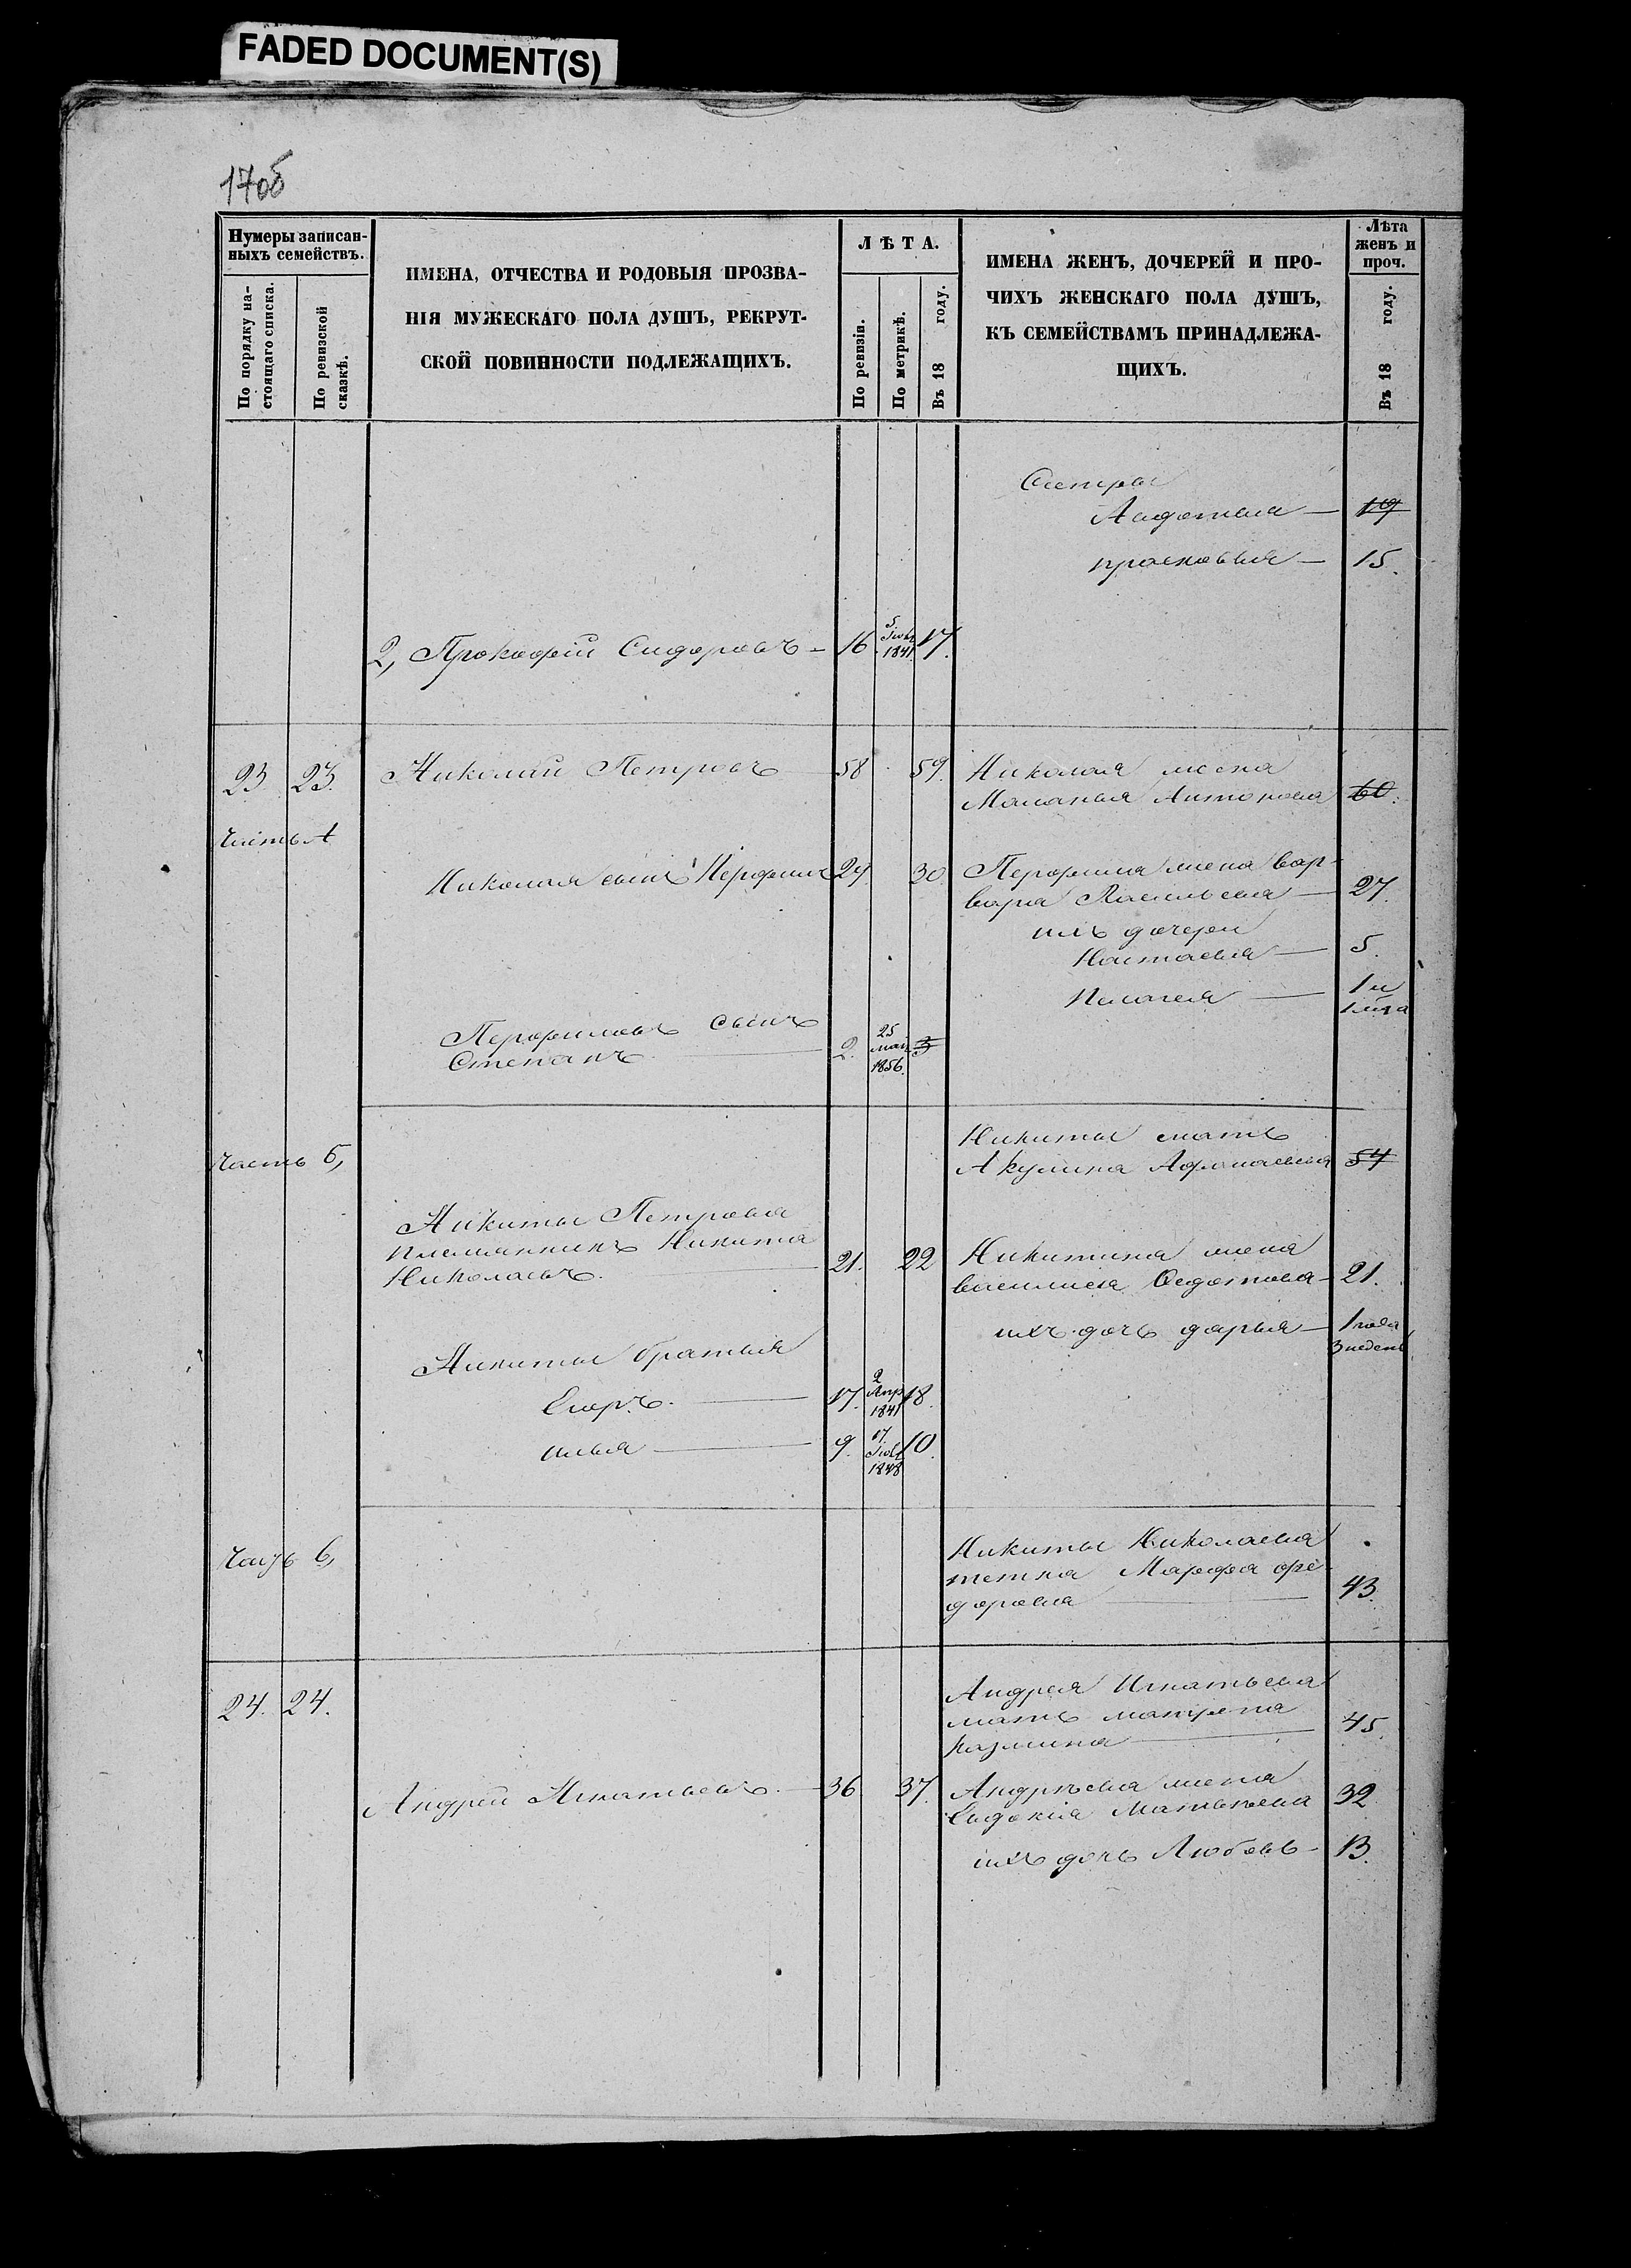 FADED DOCUMENT(S)
170б
Нумеры записан-
ныхъ семействъ.
По порядку на-
стоящаго списка.
По ревизской
сказкѣ.
ИМЕНА, ОТЧЕСТВА И РОДОВЫЯ ПРОЗВА-
НІЯ МУЖЕСКАГО ПОЛА ДУШЪ, РЕКРУТ-
СКОЙ ПОВИННОСТИ ПОДЛЕЖАЩИХЪ.
ЛѢТА.
По ревизіи.
По метрикѣ.
Въ 18 году.
ИМЕНА ЖЕНЪ, ДОЧЕРЕЙ И ПРО-
ЧИХЪ ЖЕНСКАГО ПОЛА ДУШЪ,
КЪ СЕМЕЙСТВАМЪ ПРИНАДЛЕЖА-
ЩИХЪ.
Лѣта
женъ и
проч.
Въ 18 году.
Сестры
Авдотья — 19
прасковья — 15.
2, Прокофій Сидоровъ — 16 5 Іюль 1841 17.
23 23. Николай Петровъ 58 59. Николая жена
Маланья Антонова 60.
Часть А
Николая сынъ Перфилъ 29 30 Перфила жена вар-
вара Васильева — 27.
ихъ дочери
Настасья — 5.
Пелагея — 1 и
Перфиловъ сынъ
Степанъ 2. 25 Мая 1856. 3
Никиты мать
Часть б, Акулина Афанасьева 54
Никиты Петрова
племянникъ Никита
Николаевъ. 21. 22
Никитина жена
василиса Федотова — 21.
ихъ дочь дарья — 1 года
3 недель
Никиты братья
Егоръ. — 17. 2 Апр 1841 18.
илья — 9. 17. Іюль 1848 10.
Часть в,
Никиты Николаева
тетка Марфа фе-
дорова — 43.
24. 24.
Андрея Игнатьева
мать матрена
Казмина — 45.
Андрей Игнатьевъ. — 36 37. Андрѣева жена
Евдокія Матвѣева 32
ихъ дочь Любовь — 13.